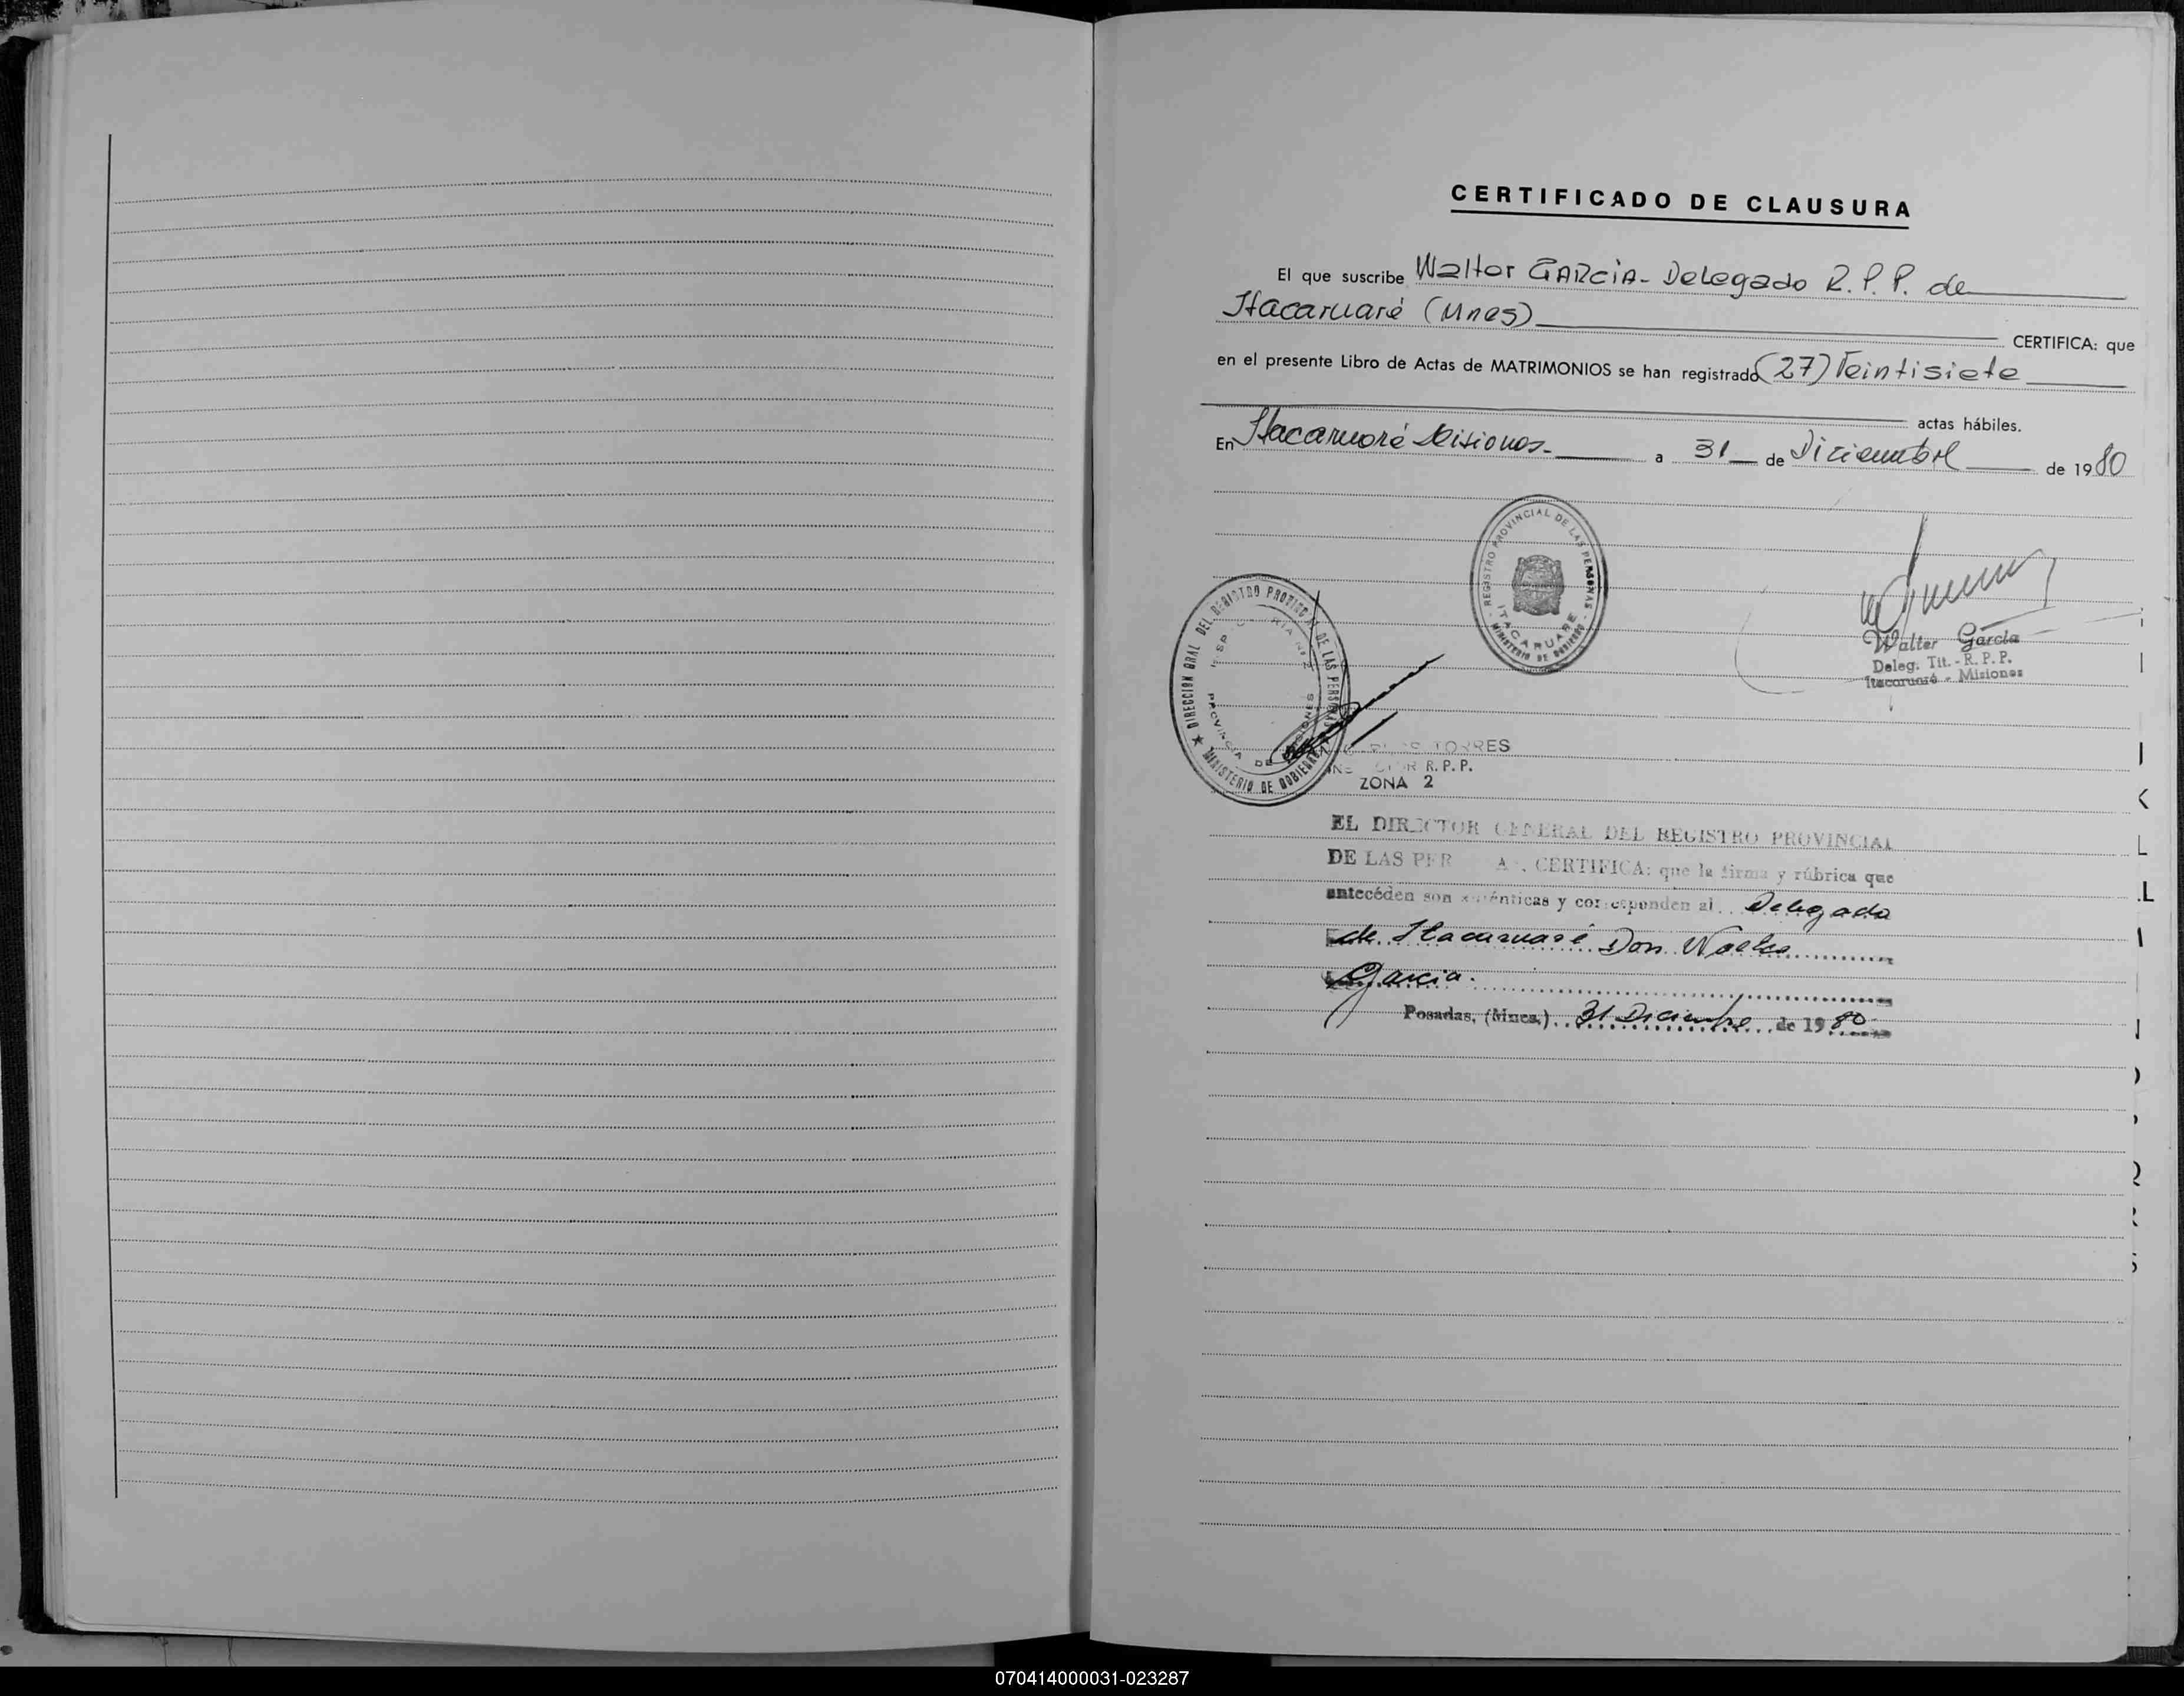 CERTIFICADO DE CLAUSURA
El que suscribe Walter GARCIA - Delegado R.P.P. de
Itacaruaré (Mnes) CERTIFICA: que
en el presente Libro de Actas de MATRIMONIOS se han registrado (27) Veintisiete
actas hábiles.
En Itacaruaré Misiones - a 31 de Diciembre de 1980
REGISTRO PROVINCIAL DE LAS PERSONAS
ITACARUARE
MINISTERIO DE GOBIERNO
Walter García
Deleg. Tit. - R.P.P.
Itacaruaré - Misiones
DIRECCION GRAL DEL REGISTRO PROVINCIAL DE LAS PERSONAS
PROVINCIA DE MISIONES
MINISTERIO DE GOBIERNO
TORRES
R.P.P.
ZONA 2
EL DIRECTOR GENERAL DEL REGISTRO PROVINCIAL
DE LAS PER A , CERTIFICA: que la firma y rúbrica que
antecéden son auténticas y corresponden al Delegado
de Itacaruaré Don Walter
Garcia.
Posadas, (Mnes.) 31 Diciembre de 1980
070414000031-023287